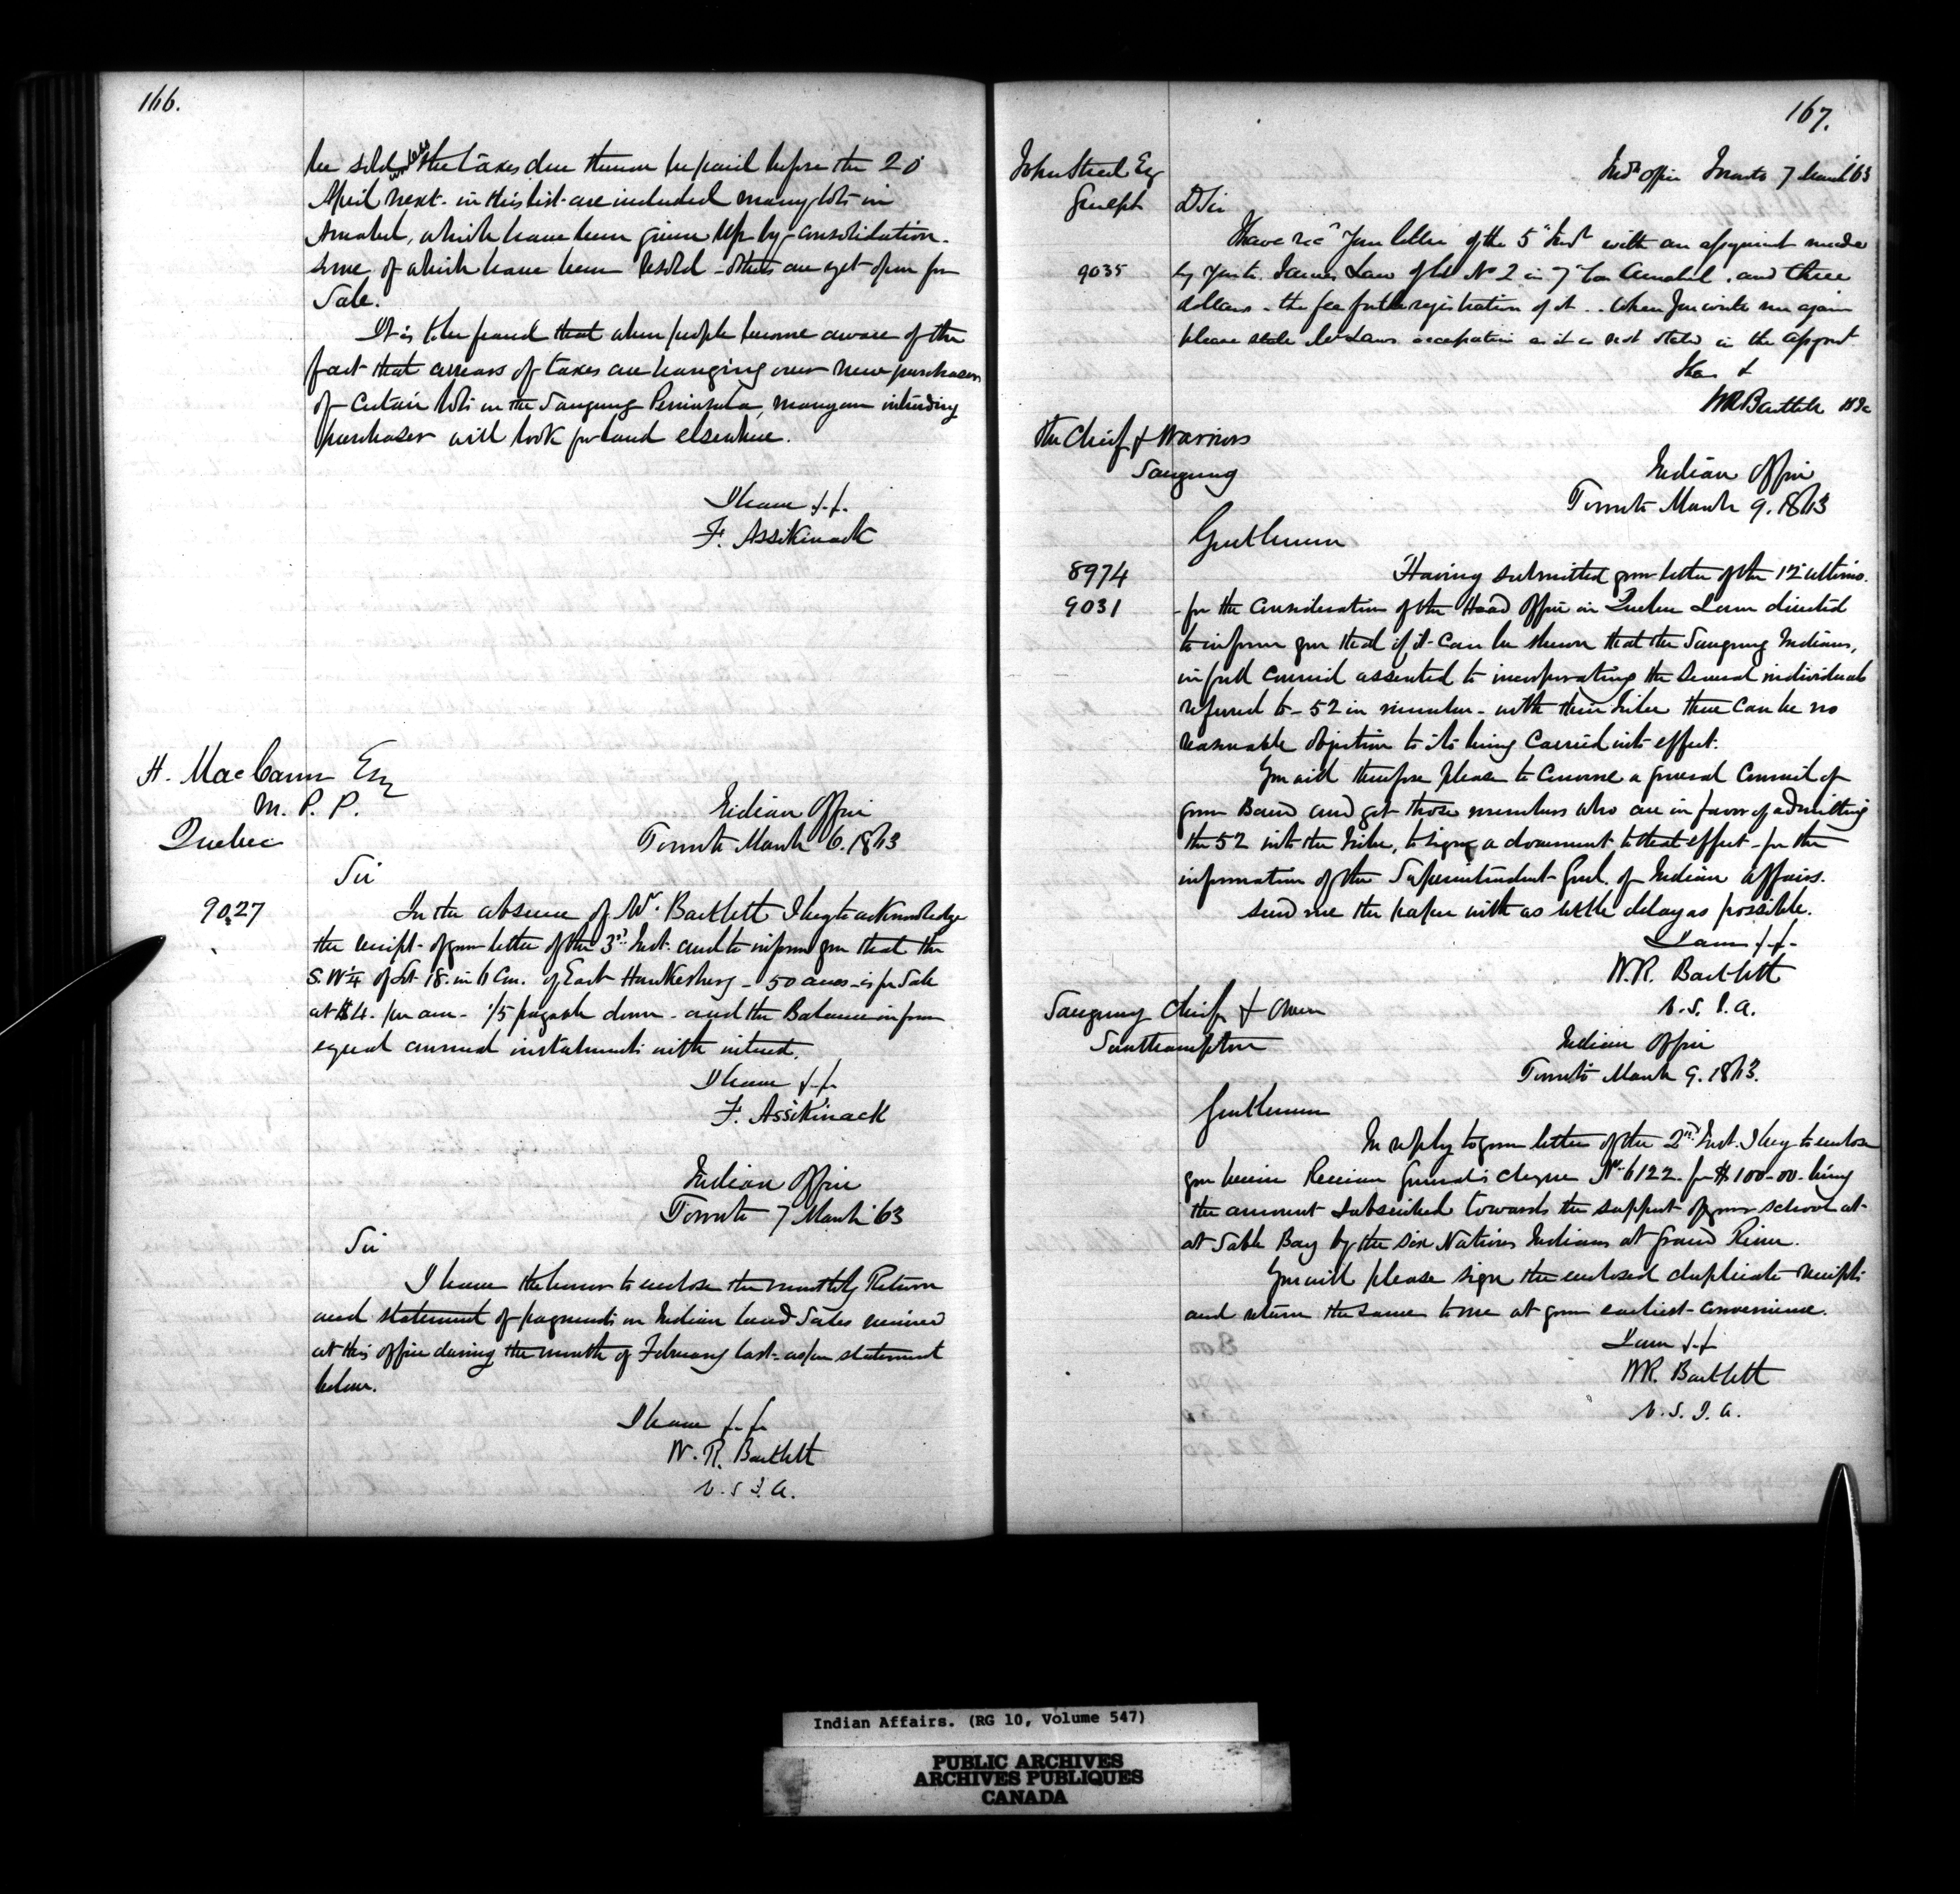 166.
be sold unless the taxes due thereon be paid before the 20
April next. in this list are included many lots in
Amabel, which have been given up by consolidation.
some of which have been resold - others are yet open for
Sale.
It is to be feared that when people become aware of the
fact that arrears of taxes are hanging over new purchasers
of certain lots in the Saugeeng Peninsula, many an intending
purchaser will look for land elsewhere.
I have &.&.
F. Assikinack
H. MacCann Esq
M. P. P.
Quebec
Indian Office
Toronto March 6. 1863
Sir
9027
In the absence of Mr. Bartlett I beg to acknowledge
the receipt of your letter of the 3rd Inst. and to inform you that the
S. W 1/4 of Lot 18. in 6 Con. of East Hawkesbury - 50 acres - is for Sale
at $4. per acre - 1/5 payable down - and the Balance in four
equal annual instalments with interest.
I have &.&.
F. Assikinack
Indian Office
Toronto 7 March '63
Sir
I have the honor to enclose the monthly Return
and statement of payments on Indian land Sales received
at this office during the month of February last - as per statement
below.
I have &.&.
W. R. Bartlett
V. S. I. A.
167.
John Steel Esq
Guelph
Ind Office Toronto 7 March 63
D Sir
Have recd Your letter of the 5 Inst with an assignment made
9035
by you to James Law of lot No 2 in 7 Con Amabel. and three
dollars - the fee for the registration of it .. When You write me again
please state Mr Laws occupation as it is not stated in the assgnt
&
WR Bartlett
The Chief & Warriors
Saugeeng
Indian Office
Toronto March 9. 1863
Gentlemen
8974
Having submitted your letter of the 12 ultimo.
9031
for the consideration of the Head Office in Quebec I am directed
to inform you that if it can be shewn that the Saugeeng Indians,
in full Council assented to incorporating the several individuals
referred to - 52 in number - with their Tribe there can be no
reasonable objection to its being carried into effect.
You will therefore please to convene a general Council of
your Band and get those members who are in favor of admitting
the 52 into the Tribe, to sign a document to that effect - for the
information of the Superintendent Genl. of Indian Affairs.
Send me the paper with as little delay as possible.
I am &.&.
W. R. Bartlett
V. S. I. A.
Saugeeng Chiefs & Owen
Southampton
Indian Office
Toronto March 9. 1863.
Gentlemen
In reply to your letter of the 2nd Inst. I beg to enclose
you herein Receiver General's cheque No. 6122. for $100-00. being
the amount subscribed towards the support of your school at
at Sable Bay by the Six Nations Indians at Grand River.
You will please sign the enclosed duplicate receipts
and return the same to me at your earliest convenience.
I am &.&
WR. Bartlett
V. S. I. A.
Indian Affairs. (RG 10, Volume 547)
PUBLIC ARCHIVES
ARCHIVES PUBLIQUES
CANADA